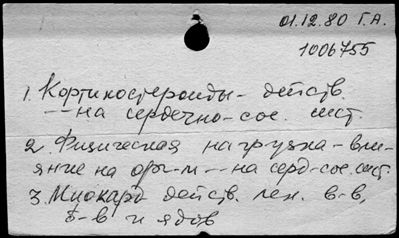 01.12.80 Г.А.
1006755
1. Кортикостероиды - действ.
-- на сердечно-сос. сист.
2. Физическая нагрузка - вли-
яние на орг-м -- на серд-сос. сист.
3. Миокард действ. лек. в-в,
б-в и ядов